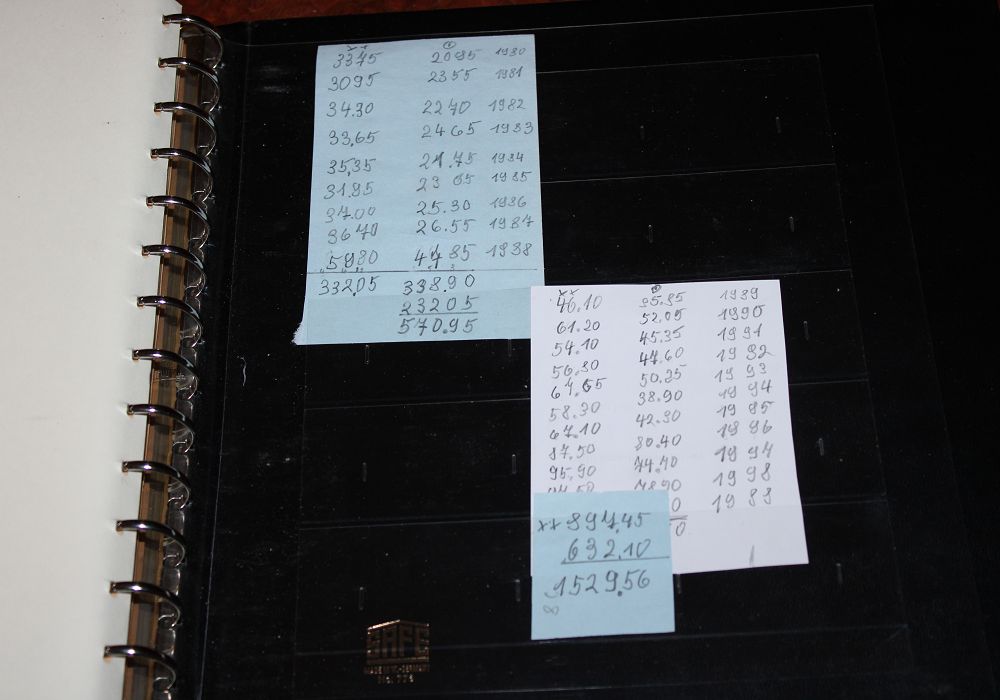 33.75 20.95 1980
30.95 23.55 1981
34.30 22.70 1982
33,65 24.65 1983
35,35 21.75 1984
31.95 23 65 1985
37.00 25.30 1986
36.70 26.55 1987
59.80 44.85 1988
332.05 338.90
23205
570.95
46.10 1989
61.20 52.05 1990
54.10 45.35 1991
56.30 47.60 1992
67.65 50.25 1993
58.30 38.90 1994
67.10 42.30 1995
87.50 80.40 1996
95.90 74.70 1997
78.90 1998
0 1999
0
xx 897.45
632.10
1529.56
SAFE